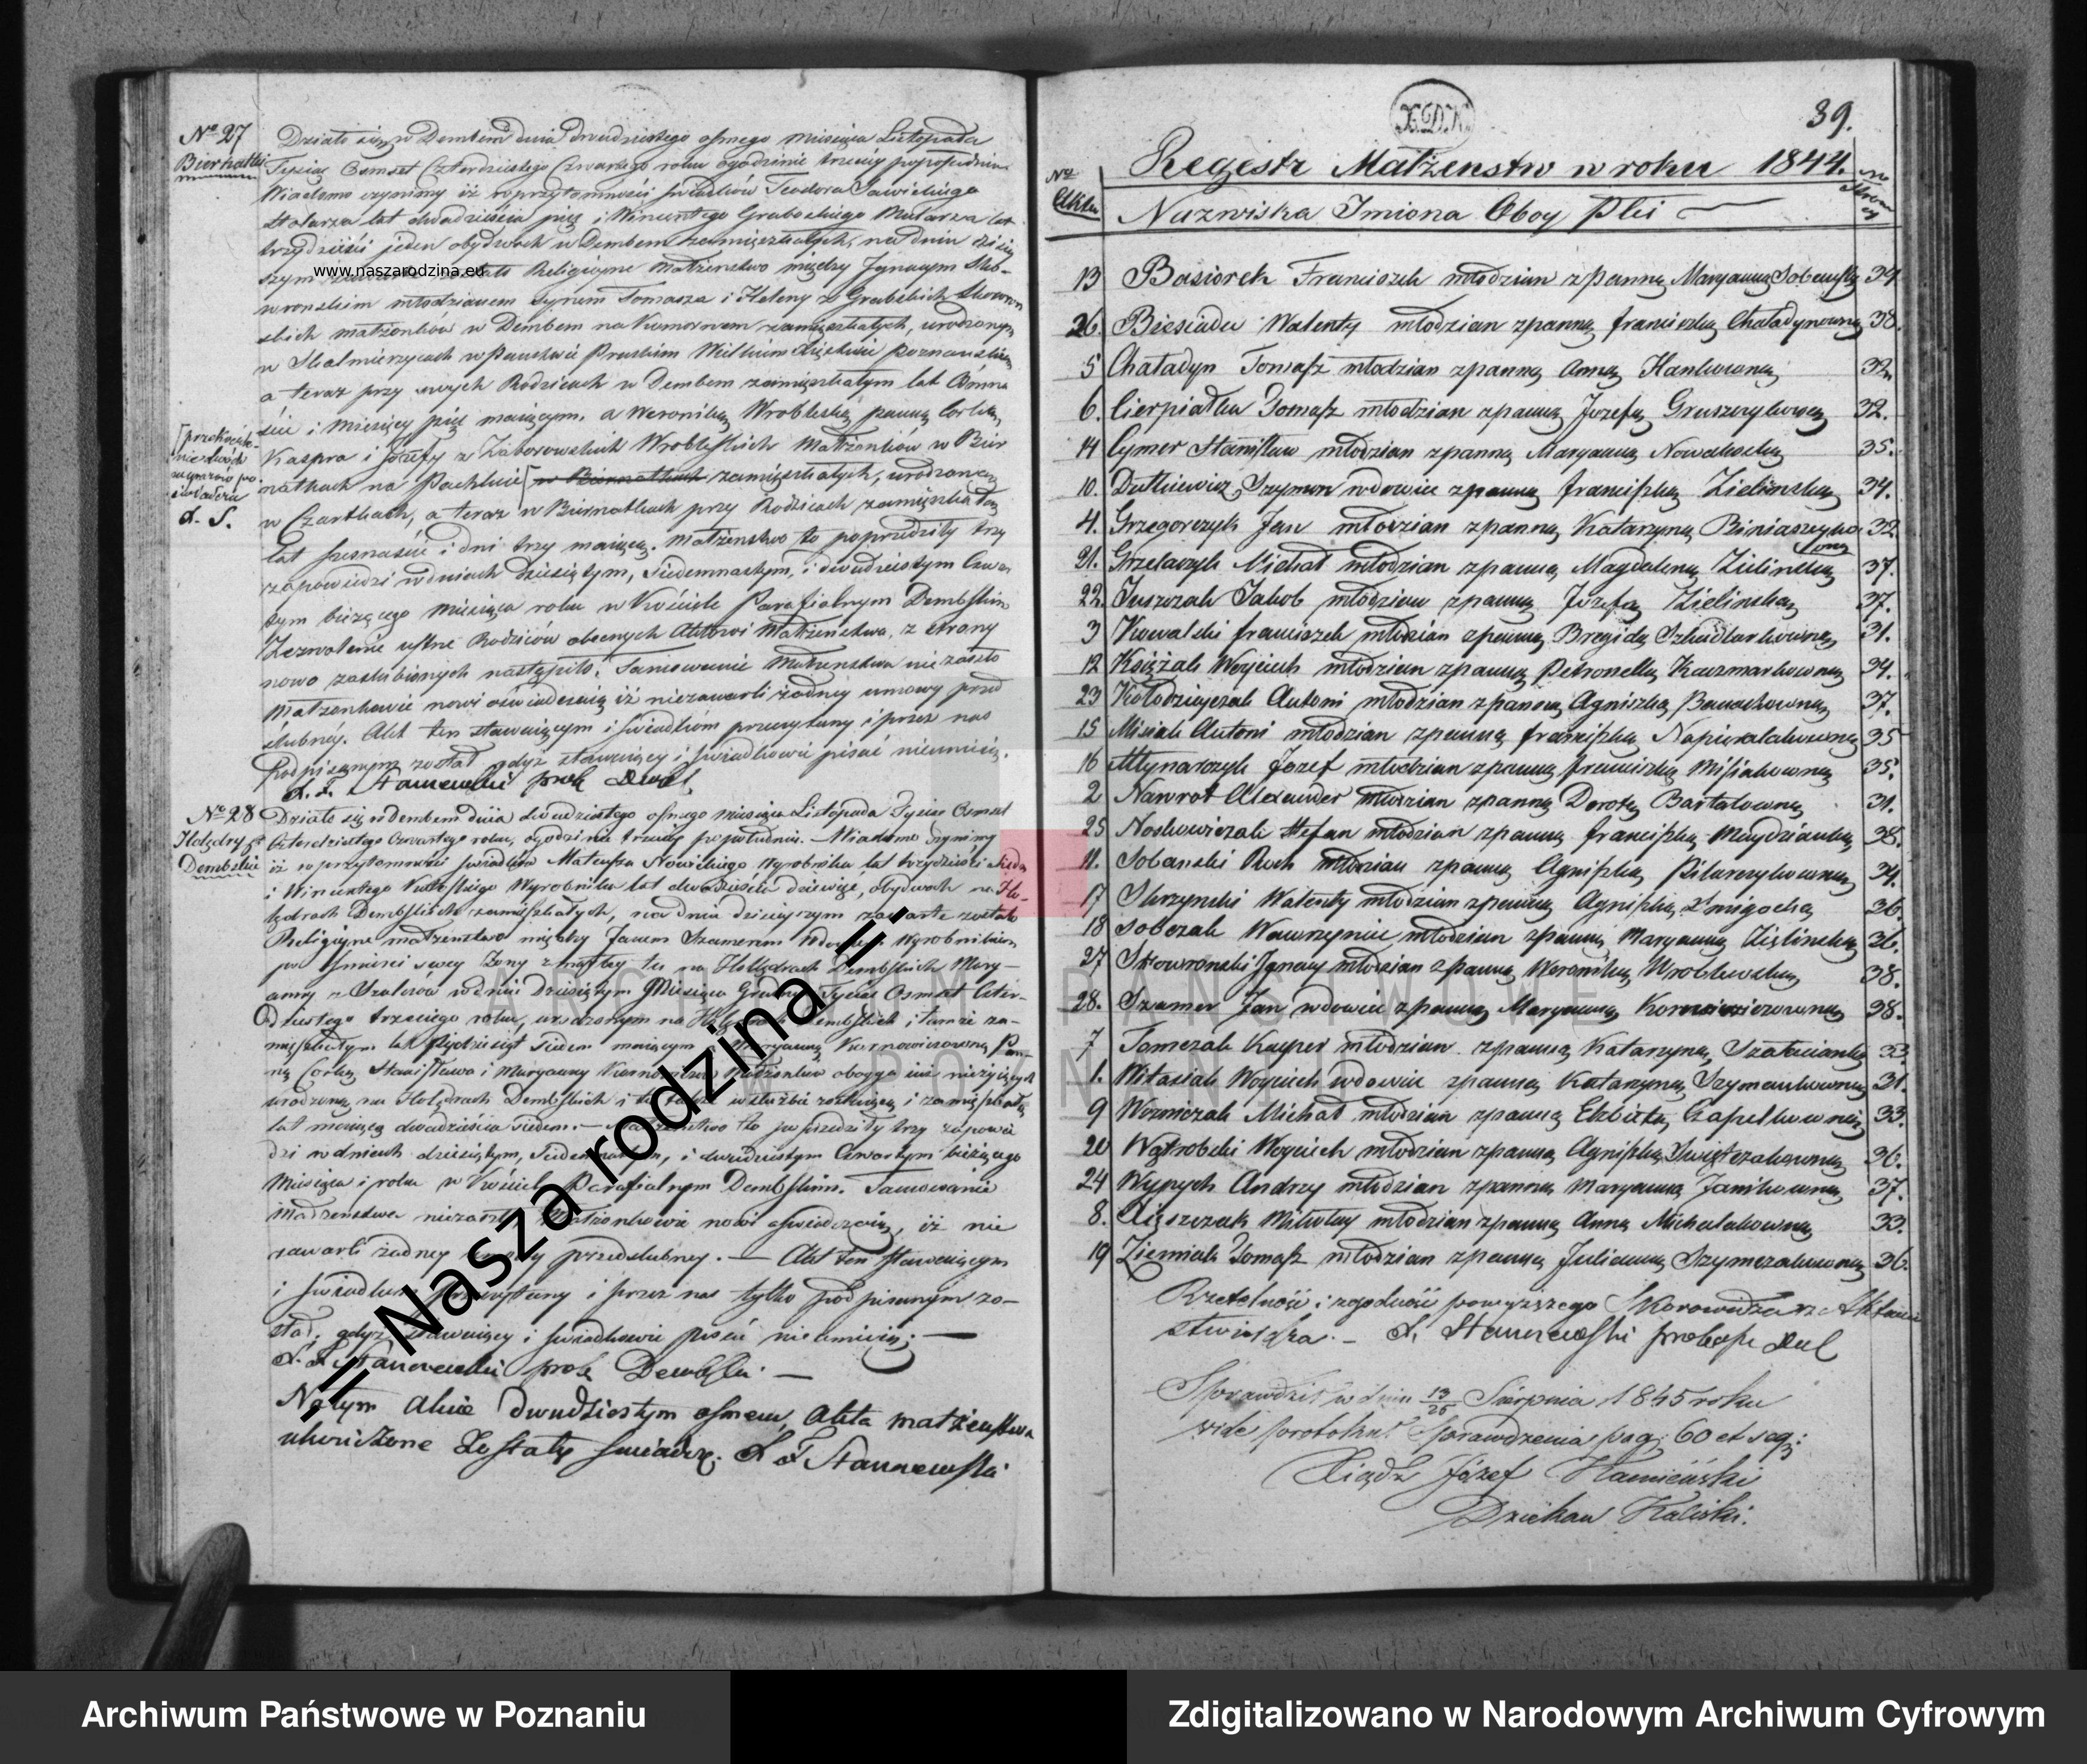 No 27
Biernatki
Działo się w Dembem dnia dwudziestego osmego miesiąca Listopada
Tysiąc Osmset Czterdziestego Czwartego roku o godzinie trzeciey popołudniu
Wiadomo czynimy iż w przytomności świadków Teodora Sawickiego
stolarza lat dwadzieścia pięć i Wincentego Grabskiego Mularza lat
trzydzieści jeden obydwóch w Dembem zamięszkałych, na dniu dzisiey
szym zawarte zostało Religijne małżeństwo między Ignacym Sko-
wronskim młodzianem synem Tomasza i Heleny z Grabskich Skowron
skich małżonków w Dembem na Komornem zamięszkałych, urodzonym
w Skalmierzycach w Państwie Pruskim Wielkim Księstwie Poznanskim
a teraz przy swych Rodzicach w Dembem zamięszkałym lat
i miesięcy pięć maiącym, a Weroniką Wroblską panną Corką
Kaspra i Józefy z Zaborowskich Wroblskich Małżonków w Bier
natkach na Pachcie w Biernatkach zamięszkałych, urodzoną
w Czartkach, a teraz w Biernatkach przy Rodzicach zamięszkałą
lat szesnaście i dni trzy maiącą. Małżenstwo to poprzedziły trzy
zapowiedzi w dniach dziesiątym, siedemnastym, i dwudziestym Czwar
tym bieżącego miesiąca roku w Kościele Parafialnym Dembskim
Zezwolenie ustne Rodziców obecnych Aktowi Małżeństwa, z strony
nowo zaślubionych nastąpiło. Tamowanie Małżenstwa nie zaszło
Małżonkowie nowi oświadczaią iż niezawarli żadney umowy przed
ślubnéy. Akt ten stawaiącym i świadkom przeczytany i przez nas
Podpisanym został gdyż stawaiący i świadkowie pisać nieumieią.
X. F. Stanczewski prob
No 28
Holędry
Dembskie
Działo się w Dembem dniia dwudziestego osmego miesiąca Listopada Tysiąc Osmset
Czterdziestego Czwartego roku, o godzinie trzeciey popołudniu. Wiadomo czynimy
iż w przytomności świadków Mateusza Nowickiego wyrobnika lat trzydzieści siedm
i Wincentego wyrobnika lat dwadzieścia dziewięć, obydwóch na Ho-
lędrach Dembskich zamięszkałych, na dniu dzisieyszym zawarte zostało
Religijne małżenstwo między Janem Szamerem Wdowcem Wyrobnikiem
po śmierci swey Żony zmarłey tu na Holędrach Dembskich Mary-
anny z w dniu Dziesiątym Miesiąca Grudnia Tysiąc Osmset Czter-
dziestego trzeciego roku, urodzonym na Holędrach Dembskich i tamże za-
mięszkałym lat pięćdziesiąt siedem maiącym i Maryanną Karnowiczowną Pan-
ną Corką Stanisława i Maryanny Małżonków obojga iuż nieżyiących
urodzoną na Holędrach Dembskich i tu także w służbie zostaiącą i zamięszkałą
lat maiącą dwadzieścia siedem. — Małżenstwo to poprzedziły trzy zapowie
dzi w dniach dziesiątym, siedemnastym, i dwudziestym Czwartym bieżącego
Miesiąca i roku w Kościele Parafialnym Dembskim. Tamowanie
Małżenstwa niezaszło Małżonkowie nowi oświadczaią, iż nie
zawarli żadney umowy przedślubney. — Akt ten stawaiącym
i świadkom przeczytany i przez nas tylko podpisanym zo-
stał, gdyż stawaiący i świadkowie pisać nieumieią; —
X. F. Stanczewski prob Dembski —
Na tym Akcie dwudziestym osmem, Akta małżenstwa
ukończone Zostały świadczę. X F Stanczewski
www.naszarodzina.eu
= Nasza rodzina =
39.
Regestr Małżenstw w roku 1844.
No
Aktu
Nazwiska Imiona Oboy Płci
No
Strony
13 Basiorek Franciszek młodzian z panną Maryanną Sobanską 34
26. Biesiada Walenty młodzian z panną franciszką Chaładynowną 38.
5 Chaładyn Tomasz młodzian z panną Anną Hankowną 32
6. Cierpiatka Tomasz młodzian z panną Jozefą Gruszczykowną 32.
14 Cymer Stanisław młodzian z panną Maryanną Nowakoską 35.
10. Dutkiewicz Szymon wdowiec z panną franciszką Zielinską 34.
4. Grzegorczyk Jan młodzian z panną Katarzyną Biniaszczyko 32
wną
21. Grzelaczyk Michał młodzian z panną Magdaleną Zielinską 37.
22. Juszczak Jakob młodzian z panną Jozefą Zielinską 37.
3 Kowalski franciszek młodzian z panną Brygidą Szkudlarkowną 31.
12 Książak Woyciech młodzian z panną Petronellą Kaczmarkowną 34.
23 Kołodzieyczak Antoni młodzian z panną Agniszką Banachowną 37.
15 Misiak Antoni młodzian z panną franciszką Napierałakowną 35
16 Młynarczyk Józef młodzian z panną franciszką Misiakowną 35.
2 Nawrot Alexander młodzian z panną Dorotą Bartalowną 31.
25 Noskowiczak Stefan młodzian z panną franciszką Maydzianką 38.
11. Sobanski Roch młodzian z panną Agniszką Pilarczykowną 34.
17 Skrzynski Walenty młodzian z panną Agniszką Smigocką 36.
18 Sobczak Wawrzyniec młodzian z panną Maryanną Zielinską 36.
27 Skowronski Ignacy młodzian z panną Weroniką Wroblewską 38.
28. Szamer Jan wdowiec z panną Maryanną Kornowiczowną 38.
7 Tomczak Kacper młodzian z panną Katarzyną Szałacianką 33
1. Witasiak Woyciech wdowiec z panną Katarzyną Szymankowną 31.
9 Wozniczak Michał młodzian z panną Elzbietą Czapelkowną 33.
20 Wątrobski Woyciech młodzian z panną Agniszką Swiątczakowną 36.
24 Wypych Andrzy młodzian z panną Maryanną Janikowną 37.
8. Mikołay młodzian z panną Anną Michalakowną 33.
19 Ziemiak Tomasz młodzian z panną Julianną Szymczakowną 36.
Rzetelność i zgodność powyższego Skorowidza z Aktami
stwierdza. — X. Stanczewski proboszcz
Sprawdził w dniu 13/25 Sierpnia 1845 roku
vide protokuł Sprawdzenia pag: 60 et seq:
Xiądz Józef Kamieński
Dziekan Kaliski.
Archiwum Państwowe w Poznaniu
Zdigitalizowano w Narodowym Archiwum Cyfrowym